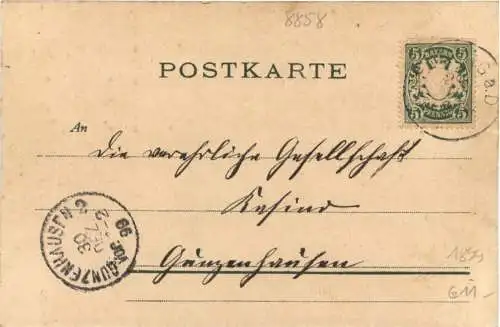 8858
POSTKARTE
5 BAYERN 5
5 PFENNIG 5
An
Die verehrliche Gesellschaft
Kasino
Gunzenhausen
GUNZENHAUSEN 2
99
1899